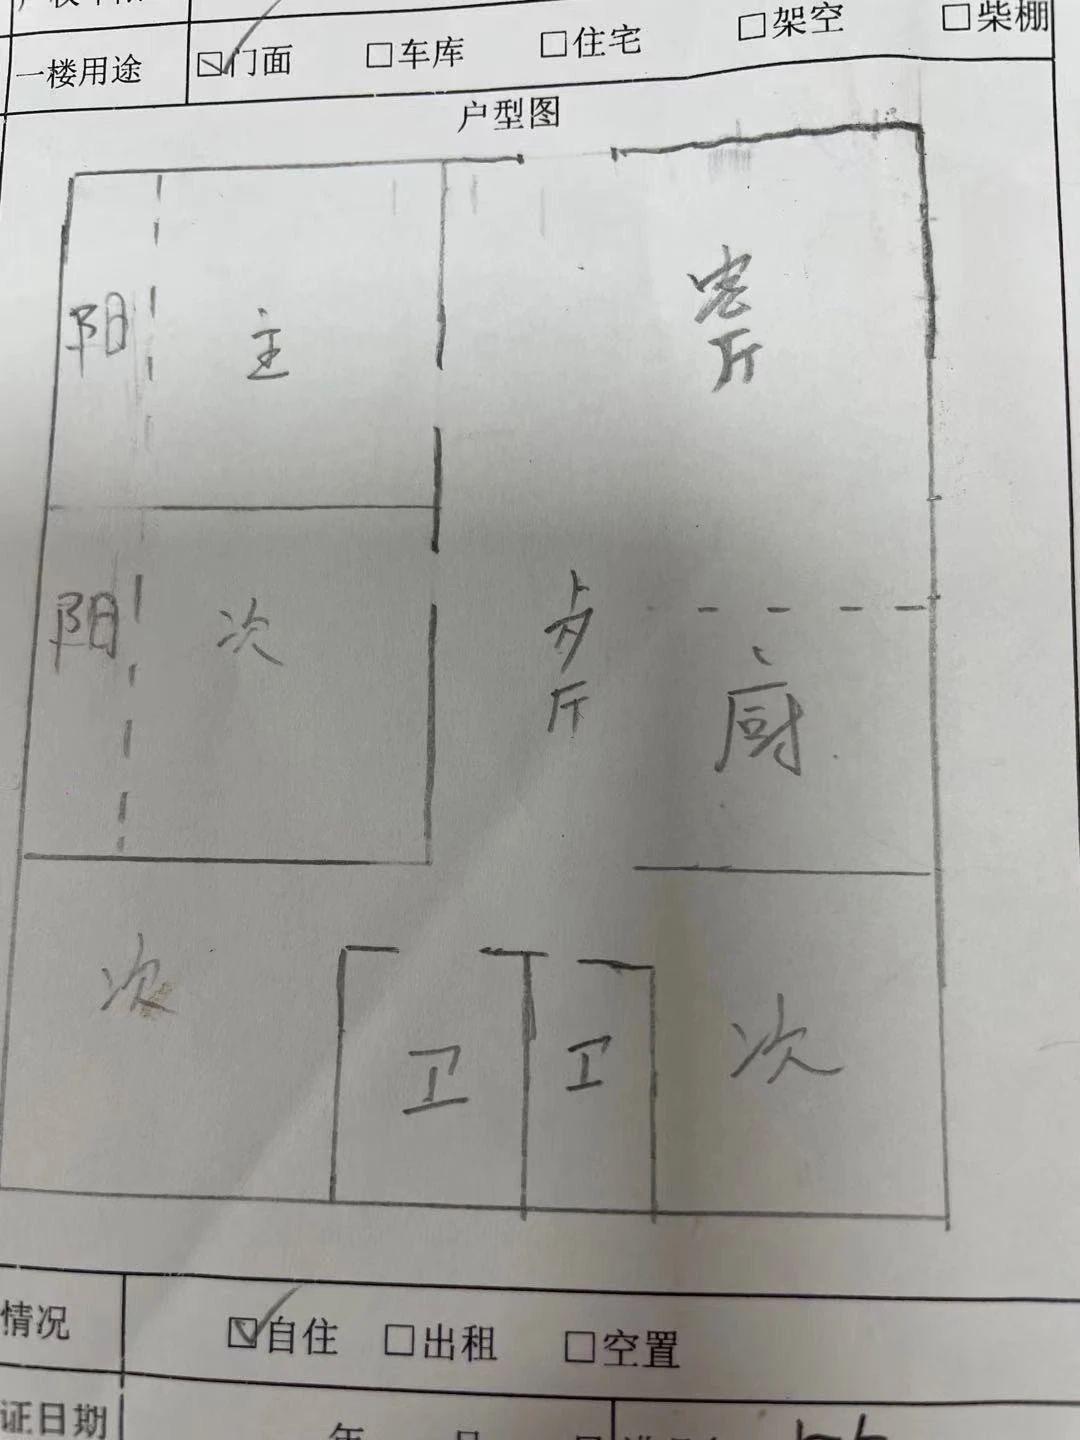 一楼用途 ☑门面 □车库 □住宅 □架空 □柴棚
户型图
客
厅
阳 主
阳 次
厅
厨
次
卫 卫 次
情况 ☑自住 □出租 □空置
证日期 年 月